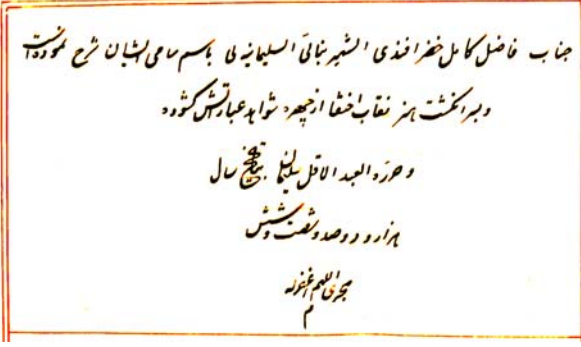 جناب فاضل کامل خضر افندی الشهیر بنالیّ السلیمانیه لی باسم سامی ایشان شرح نموده است
وسرانکشت هنر نقاب اختفا از چهره شواهد عباراتش کشوده
وحرّره العبد الاقل سلیمان بتاریخ سال
هزار و دوصد و شصت و شش
هجری اللهم اغفر له
م